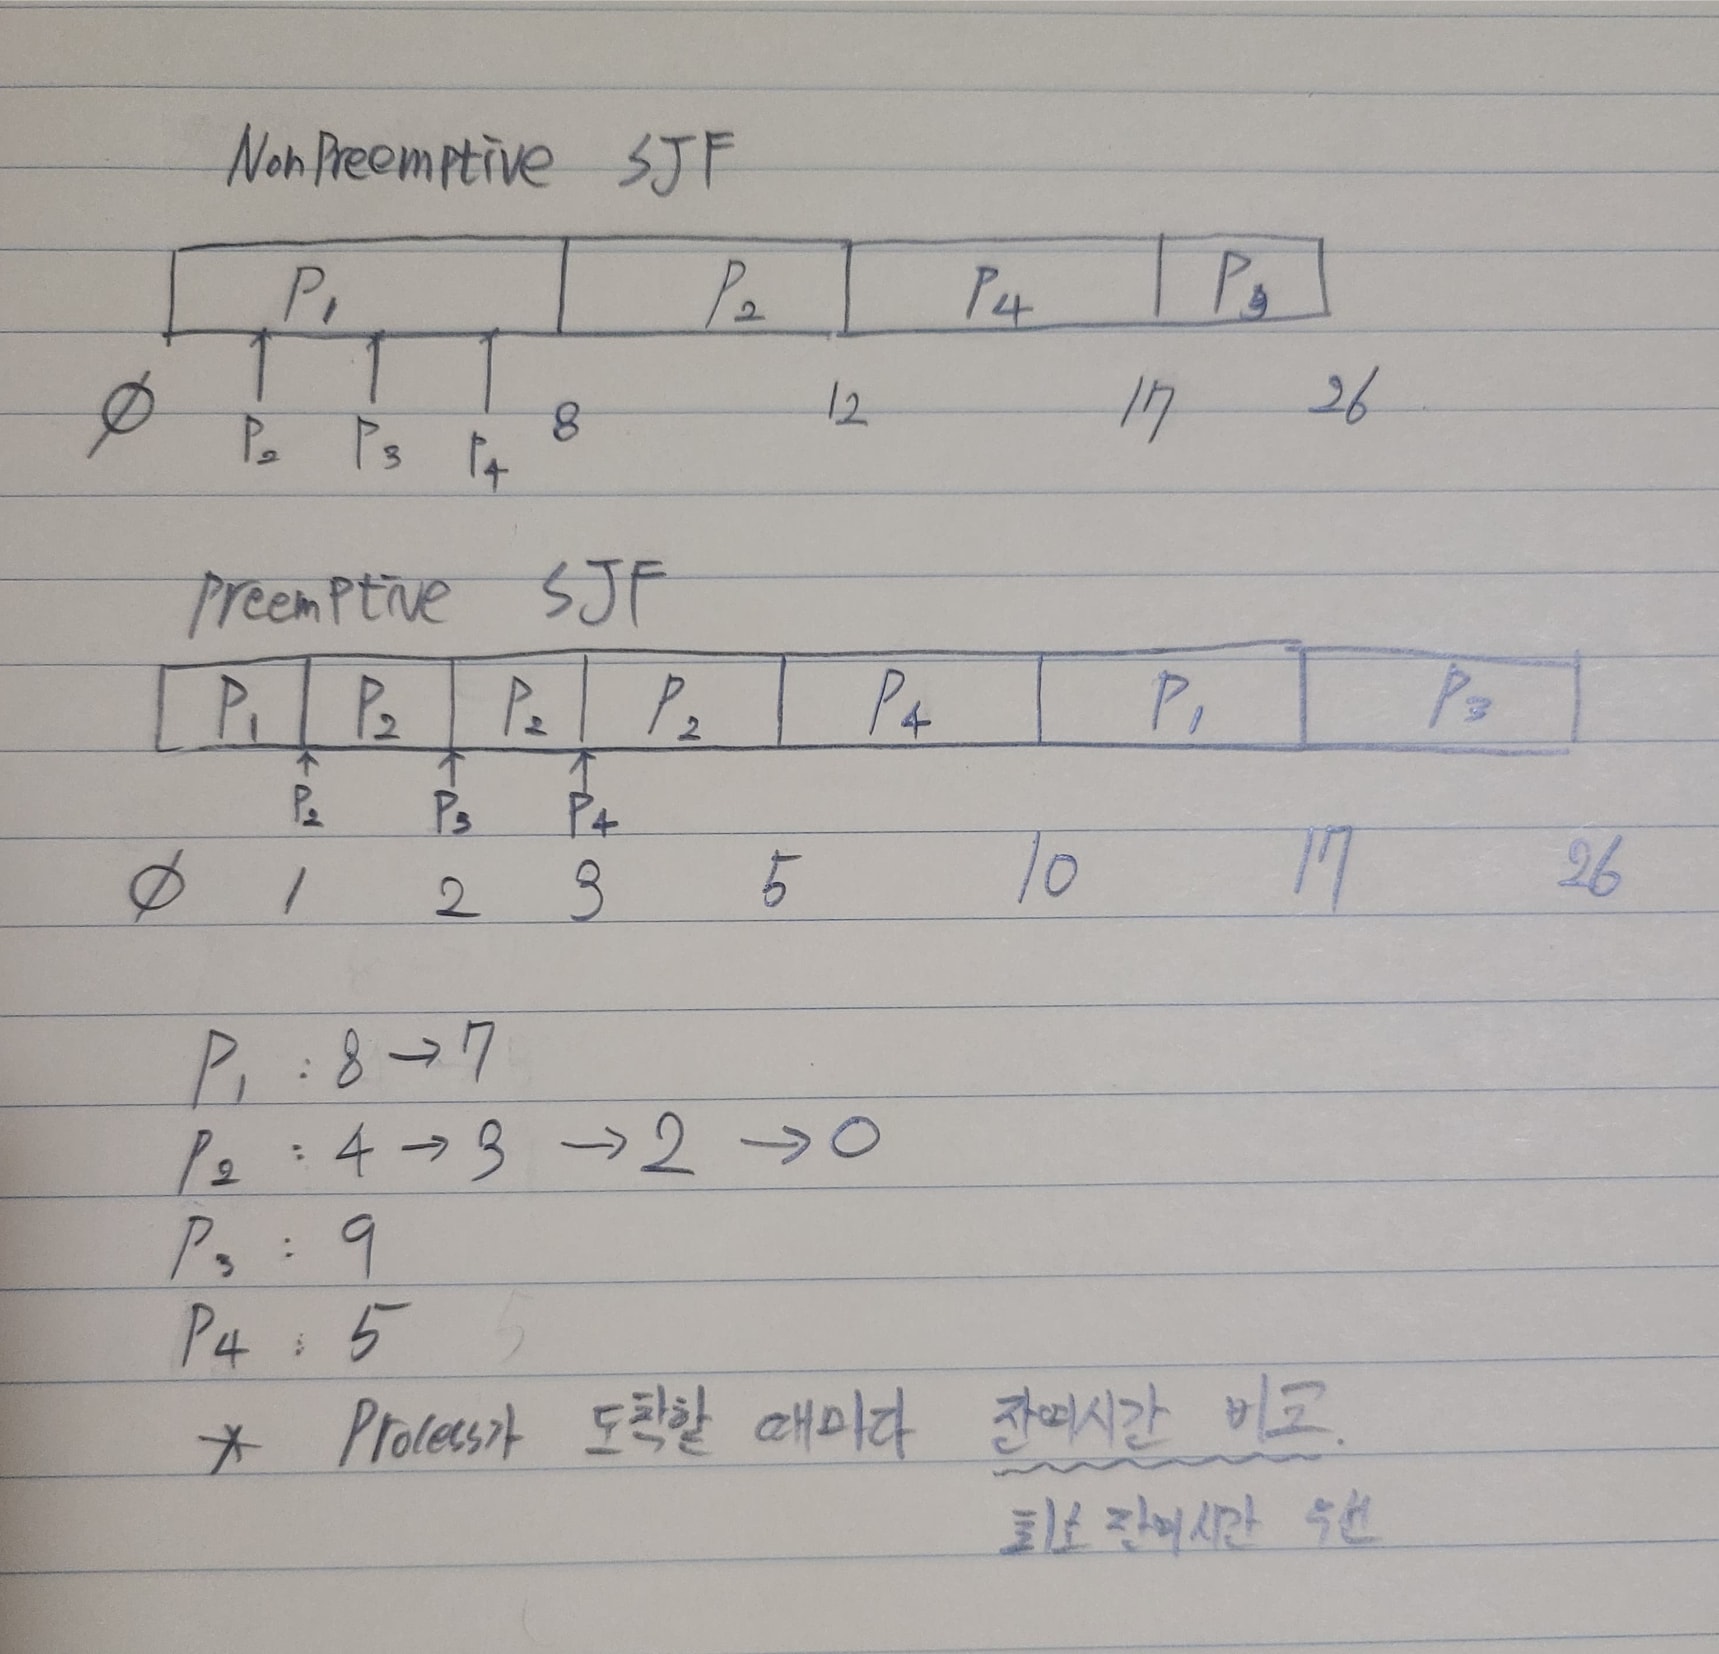 NonPreemptive SJF
P₁ P₂ P₄ P₃
Ø P₂ P₃ P₄ 8 12 17 26
Preemptive SJF
P₁ P₂ P₂ P₂ P₄ P₁ P₃
P₂ P₃ P₄
Ø 1 2 3 5 10 17 26
P₁ : 8 → 7
P₂ : 4 → 3 → 2 → 0
P₃ : 9
P₄ : 5
* Process가 도착할 때마다 잔여시간 비교.
최소 잔여시간 우선